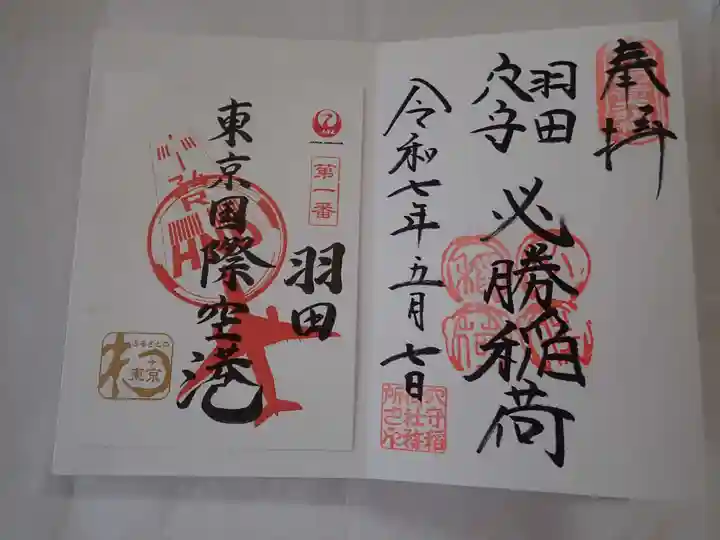 奉拝
羽田
穴守
必勝稲荷
令和七年五月七日
穴守稲
荷社務
所之印
第一番
羽田
東京国際空港
HND
ふるさとの
東京